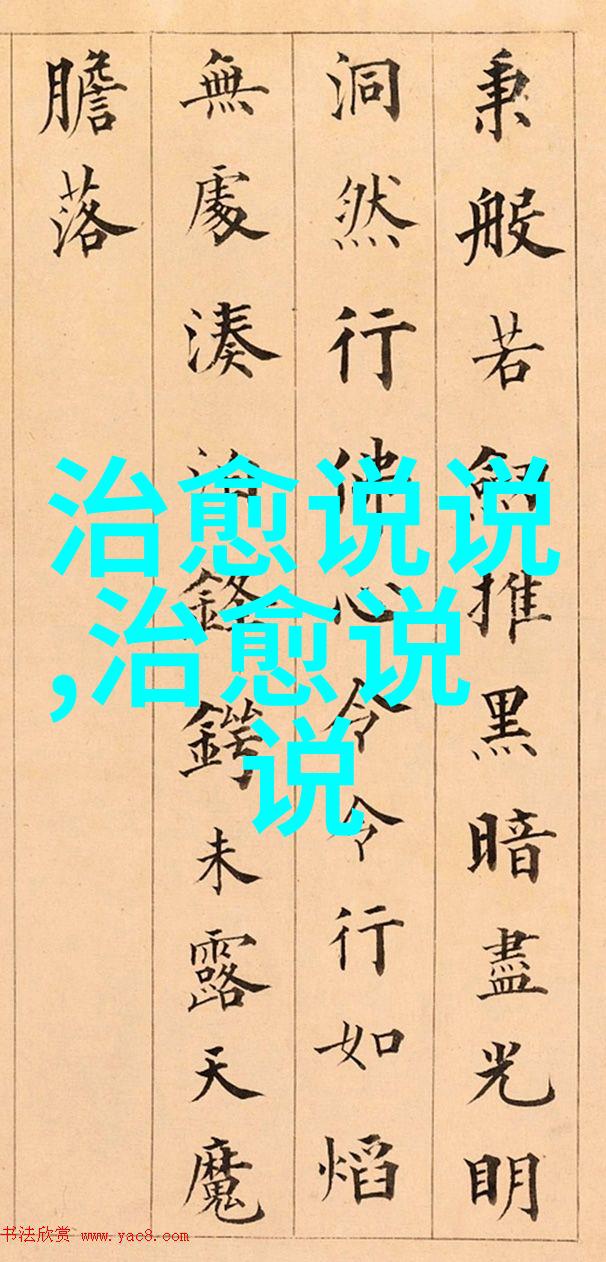 秉般若推黑暗盡光明
洞然行佛心令令行如熖
無處湊泊鋒鍔未露天魔
膽落
治愈说说
,治愈说
说
书法欣赏 www.yac8.com